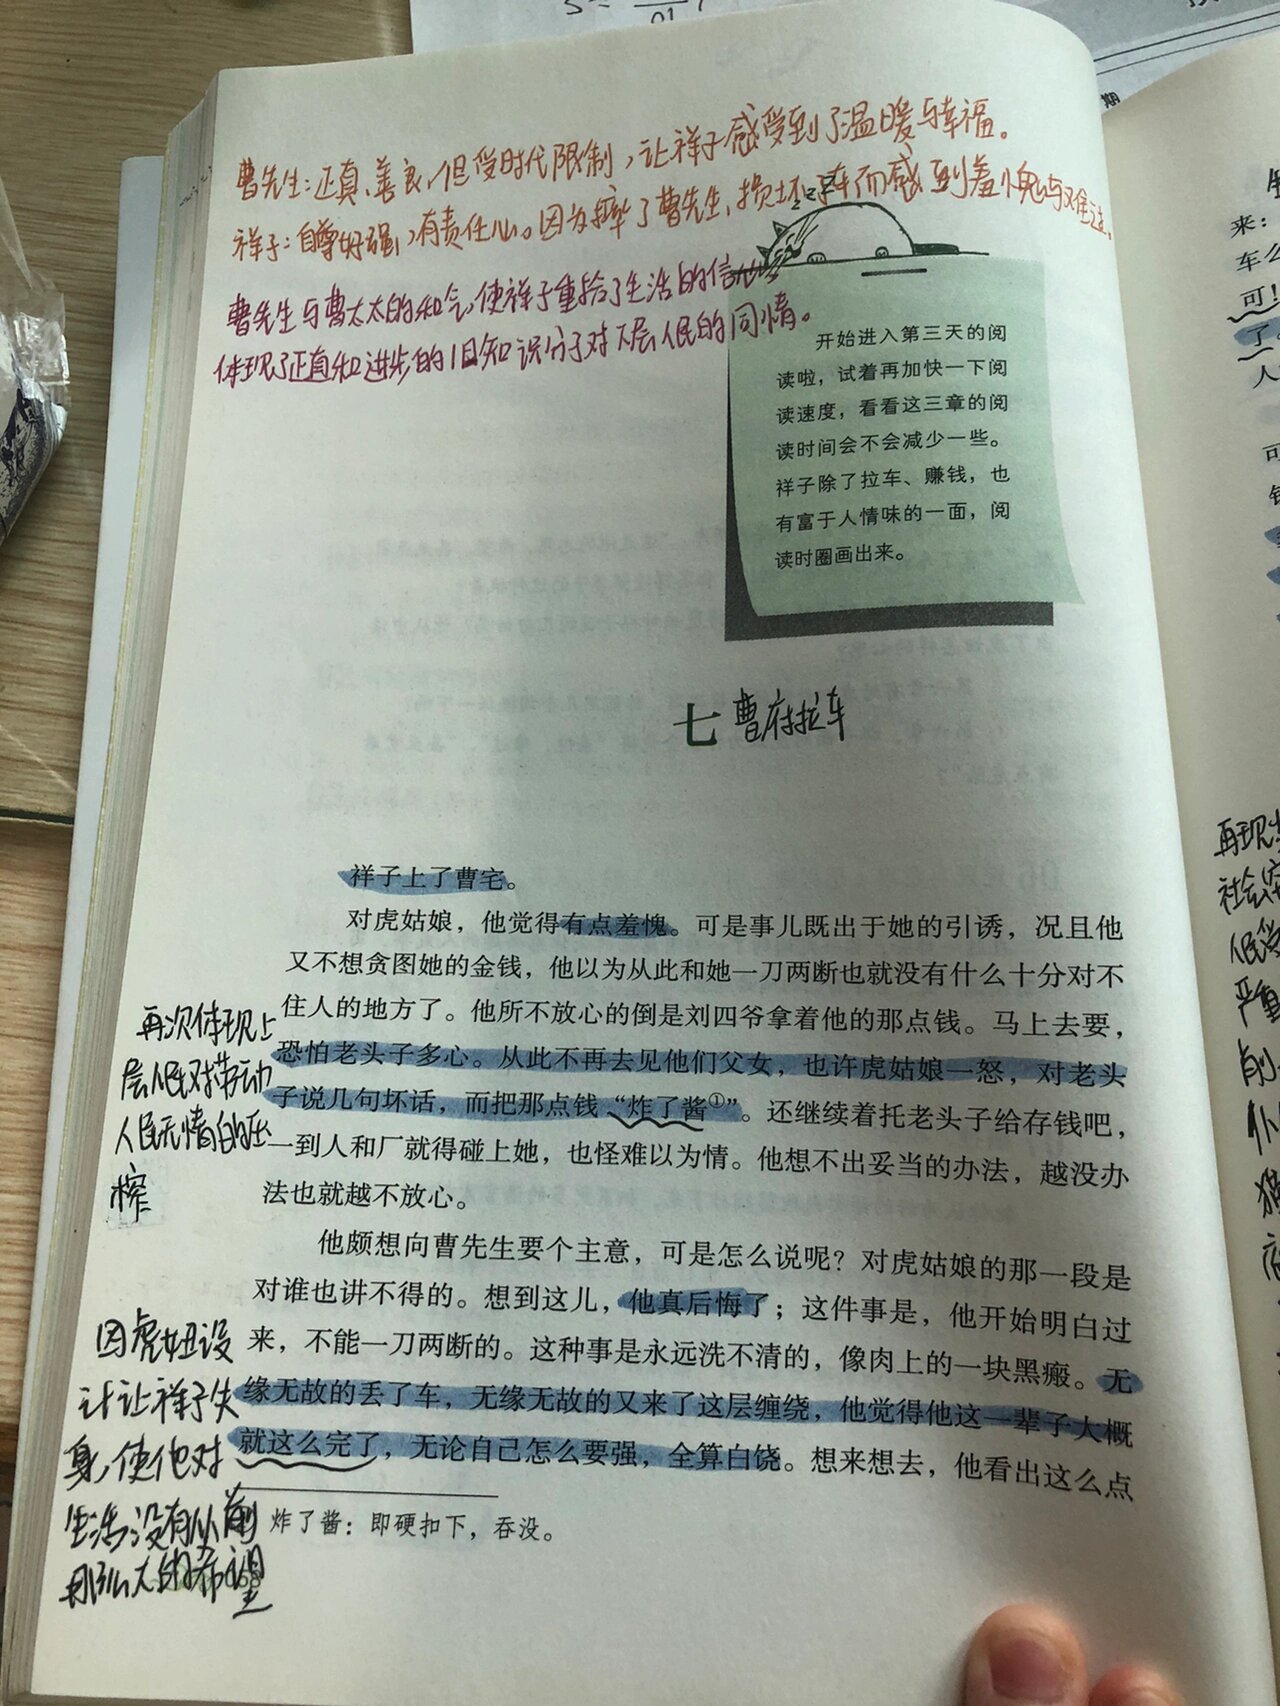 曹先生：正真、善良，但受时代限制，让祥子感受到了温暖与幸福。
祥子：自尊好强，有责任心。因为摔了曹先生、损坏了车而感到羞愧与难过。
曹先生与曹太太的和气，使祥子重拾了生活的信心，
体现了正直和进步的旧知识分子对下层人民的同情。
开始进入第三天的阅
读啦，试着再加快一下阅
读速度，看看这三章的阅
读时间会不会减少一些。
祥子除了拉车、赚钱，也
有富于人情味的一面，阅
读时圈画出来。
七 曹府拉车
祥子上了曹宅。
对虎姑娘，他觉得有点羞愧。可是事儿既出于她的引诱，况且他
又不想贪图她的金钱，他以为从此和她一刀两断也就没有什么十分对不
住人的地方了。他所不放心的倒是刘四爷拿着他的那点钱。马上去要，
恐怕老头子多心。从此不再去见他们父女，也许虎姑娘一怒，对老头
子说几句坏话，而把那点钱“炸了酱①”。还继续着托老头子给存钱吧，
一到人和厂就得碰上她，也怪难以为情。他想不出妥当的办法，越没办
法也就越不放心。
他颇想向曹先生要个主意，可是怎么说呢？对虎姑娘的那一段是
对谁也讲不得的。想到这儿，他真后悔了；这件事是，他开始明白过
来，不能一刀两断的。这种事是永远洗不清的，像肉上的一块黑瘢。无
缘无故的丢了车，无缘无故的又来了这层缠绕，他觉得他这一辈子大概
就这么完了，无论自己怎么要强，全算白饶。想来想去，他看出这么点
炸了酱：即硬扣下，吞没。
再次体现上
层人民对劳动
人民无情的压
榨
因虎妞设
计让祥子失
身，使他对
生活没有从前
那么大的希望
来：
车么
可！
了。
人
可
钱
再现
社会
严重
削
期